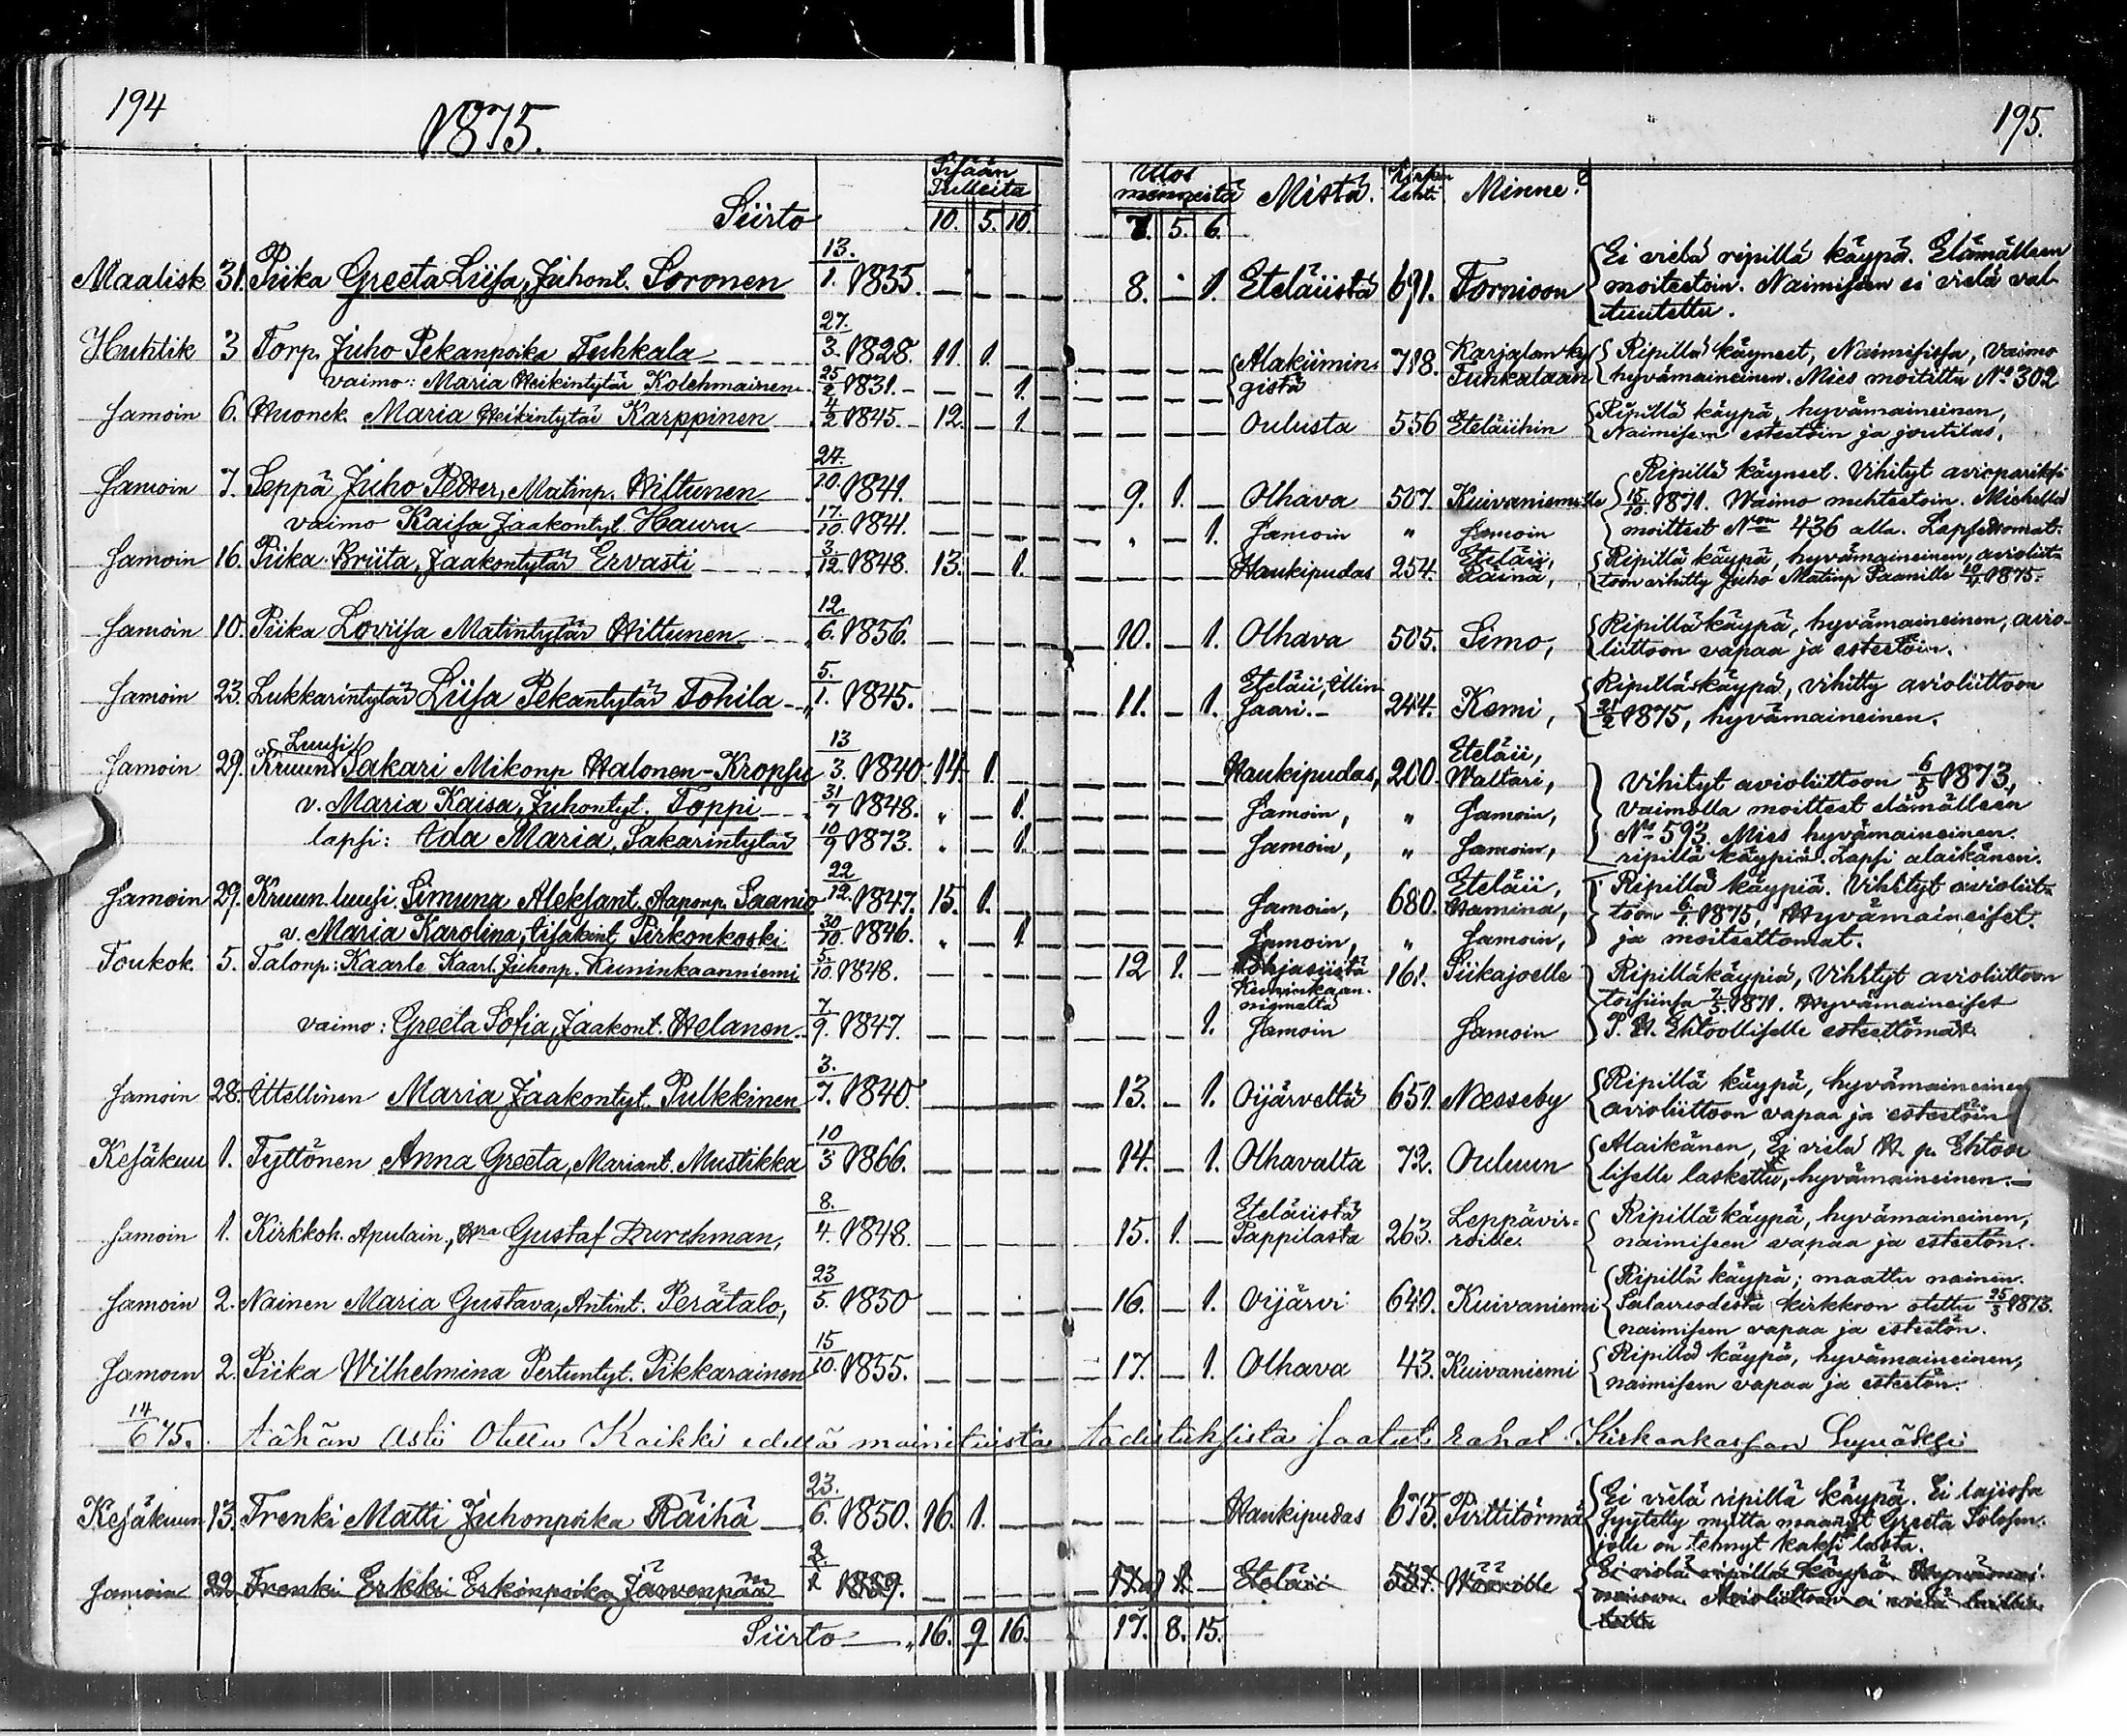 194
1875.
195.
Sisään Tulleita
Ulos menneitä Mistä. Kirkon lehti Minne?
Siirto 10. 5. 10. 7. 5. 6.
Maalisk 31. Piika Greeta Liisa, Juhont. Soronen 13./1. 1835. 8. 1. Eteläiistä 691. Tornioon Ei vielä ripillä käypä. Elämälleen
moitetoin. Naimiseen ei vielä val-
tuutettu.
Huhtik 3 Torp. Juho Pekanpoika Tuhkala 27./3. 1828. 11. 1. Alakiimin- 718. Karjalan ky Ripillä käyneet, Naimisissa, Vaimo
vaimo: Maria Heikintytär Kolehmainen 25/2 1831. 1. gistä Tuhkalaan hyvämaineinen. Mies moitittu No 302
Samoin 6. Huonek. Maria Heikintytär Karppinen 4/2 1845. 12. 1. Oulusta 556 Eteläiihin Ripillä käypä, hyvämaineinen,
Naimiseen estetöin ja joutilas.
Samoin 7. Seppä Juho Petter, Matinp. Hiltunen 24./10. 1841. 9. 1. Olhava 507. Kuivaniemelle Ripillä käyneet. Vihityt aviopariksi
15/10 1871. Waimo nuhteetoin. Miehellä
vaimo Kaisa Jaakontyt. Hauru 17./10. 1841. 1. Samoin " Samoin moitteet No 436 alla. Lapsettomat.
Samoin 16. Piika Briita, Jaakontytär Ervasti 3/12. 1848. 13. 1. Haukipudas 254. Eteläii, Raina, Ripillä käypä, hyvämaineinen, avioliit-
toon vihitty Juho Matinp Paanille 1875.
Samoin 10. Piika Loviisa Matintytär Hiltunen 12./6. 1856. 10. 1. Olhava 505. Simo, Ripillä käypä, hyvämaineinen, avio-
liittoon vapaa ja estetöin.
Samoin 23. Lukkarintytär Liisa Pekantytär Tohila 5./1. 1845. 11. 1. Eteläii, Illin Saari. 244. Kemi, Ripillä käypä, vihitty avioliittoon
21/2 1875, hyvämaineinen.
Samoin 29. Kruun Luusi Sakari Mikonp Halonen-Kropsu 13/3. 1840. 14. 1. Haukipudas, 200. Eteläii, Waltari, Vihityt avioliittoon 6/5 1873,
v. Maria Kaisa, Juhontyt. Toppi 31/7 1848. " 1. Samoin, " Samoin, Vaimolla moitteet elämälleen
No 593. Mies hyvämaineinen.
lapsi: Ada Maria, Sakarintytär 10/9 1873. " 1. Samoin, " Samoin, ripillä käypiä. Lapsi alaikänen.
Samoin 29. Kruun. luusi Simuna Aleksant. Aaponp. Saanio 22/12. 1847. 15. 1. Samoin, 680. Eteläii, Hamina, Ripillä käypiä. Vihityt avioliit-
toon 6/1. 1875, Hyvämaineiset
v. Maria Karolina, Isäkint Pirkonkoski 30/10. 1846. " 1 Samoin, " Samoin, ja moiteettomat.
Toukok. 5. Talonp: Kaarle Kaarl. Juhonp. Kuninkaanniemi 5./10. 1848. 12 1. Pohjasiistä Kuninkaan- niemeltä 161. Siikajoelle Ripilläkäypiä, Vihityt avioliittoon
toisiinsa 7/5. 1871. Hyvämaineiset
vaimo: Greeta Sofia, Jaakont. Helanen 7/9. 1847. 1. Samoin Samoin P. H. Ehtoolliselle esteettömät.
Samoin 28. Ittellinen Maria Jaakontyt. Pulkkinen 3./7. 1840. 13. 1. Oijärveltä 651. Nesseby Ripillä käypä, hyvämaineinen
avioliittoon vapaa ja estetöin
Kesäkuu 1. Tyttönen Anna Greeta, Mariant. Mustikka 10/3 1866. 14. 1. Olhavalta 72. Ouluun Alaikänen, Ei vielä H. p. Ehtool
liselle laskettu, hyvämaineinen.
Samoin 1. Kirkkoh. Apulain., Hra Gustaf Durchman, 8./4. 1848. 15. 1. Eteläiistä Pappilasta 263. Leppävir- roille. Ripillä käypä, hyvämaineinen,
naimiseen vapaa ja estetön.
Samoin 2. Nainen Maria Gustava, Antint. Perätalo, 23/5. 1850 16. 1. Oijärvi 640. Kuivaniemi Ripillä käypä; maattu nainen.
Salavuodesta kirkkoon otettu 25/3 1873.
naimiseen vapaa ja estetön.
Samoin 2. Piika Wilhelmina Pertuntyt. Pikkarainen 15/10. 1855. 17. 1. Olhava 43. Kuivaniemi Ripillä käypä, hyvämaineinen,
naimiseen vapaa ja estetön.
14/6 75. tähän Asti Otettu Kaikki edellä mainituista todistuksista saatut rahat Kirkonkassan hyväksi
Kesäkuun 13. Trenki Matti Juhonpoika Räihä 23./6. 1850. 16. 1. Haukipudas 675. Pirttitörmä Ei vielä ripillä käypä. Ei lajissa
syytetty mutta maannut Greeta Solosen.
jolle on tehnyt kaksi lasta.
Samoin 22 Trenki Erkki Erkinpoika Järvenpää 1859. 17 1 Eteläii 537. Ei vielä ripillä käypä. Hyvämai-
neinen. Avioliittoon ei vielä
Siirto 16. 9 16. 17. 8. 15.